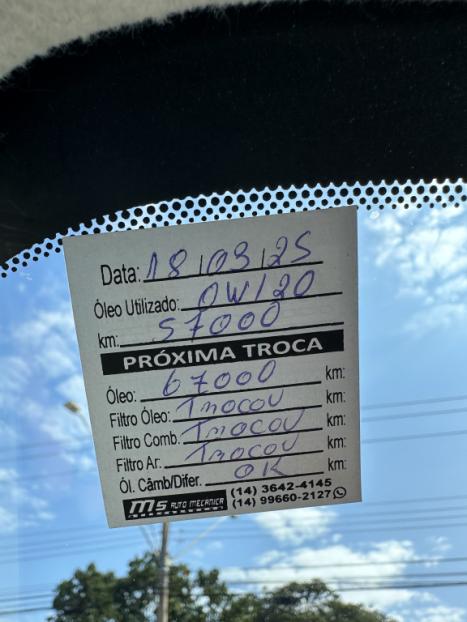 Data: 18/03/25
Óleo Utilizado: 0W/20
km: 57000
PRÓXIMA TROCA
Óleo: 67000 km:
Filtro Óleo: Trocou km:
Filtro Comb. Trocou km:
Filtro Ar: Trocou km:
Ól. Câmb/Difer. OK km:
MS AUTO MECÂNICA (14) 3642-4145
(14) 99660-2127